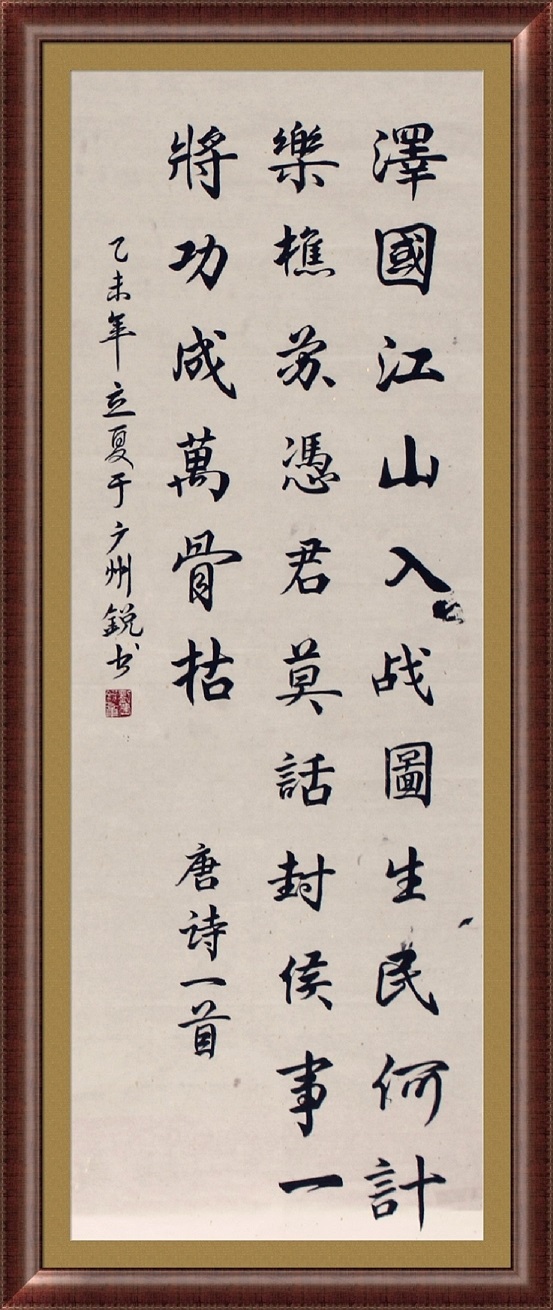 澤國江山入战圖生民何計
樂樵苏憑君莫話封侯事一
將功成萬骨枯
唐诗一首
乙未年立夏于广州鋭书